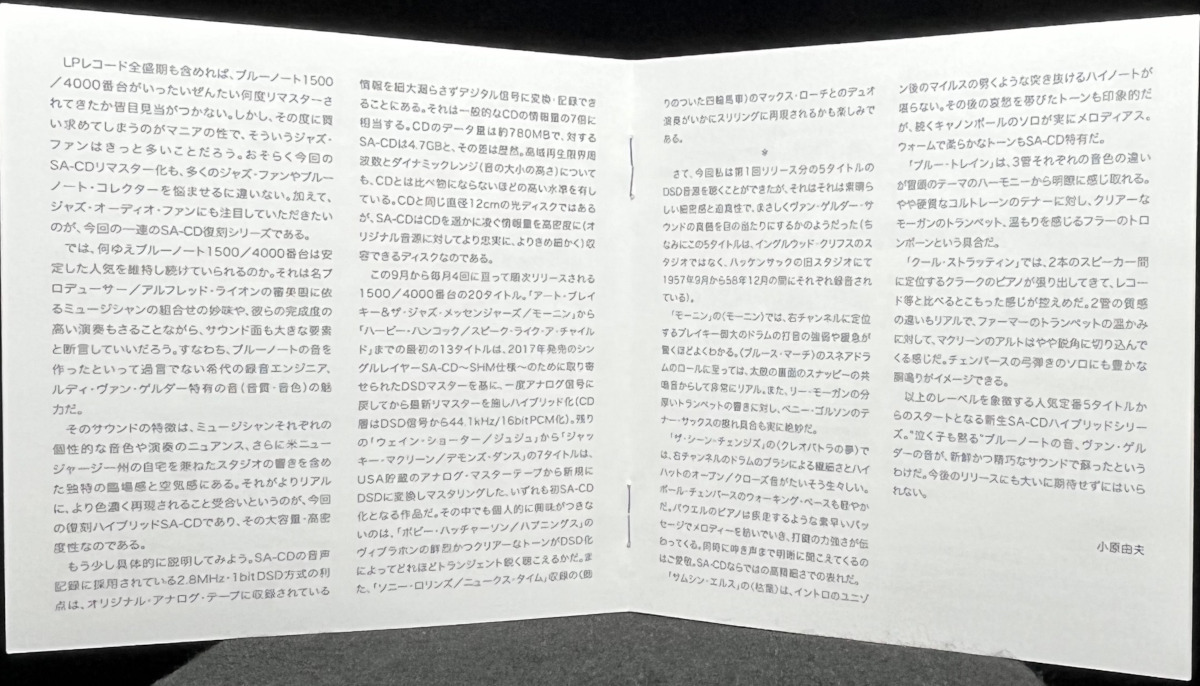 LPレコード全盛期も含めれば、ブルーノート1500
／4000番台がいったいぜんたい何度リマスターさ
れてきたか皆目見当がつかない。しかし、その度に買
い求めてしまうのがマニアの性で、そういうジャズ・
ファンはきっと多いことだろう。おそらく今回の
SA-CDリマスター化も、多くのジャズ・ファンやブルー
ノート・コレクターを悩ませるに違いない。加えて、
ジャズ・オーディオ・ファンにも注目していただきたい
のが、今回の一連のSA-CD復刻シリーズである。
では、何ゆえブルーノート1500／4000番台は安
定した人気を維持し続けていられるのか。それは名プ
ロデューサー／アルフレッド・ライオンの審美眼に依
るミュージシャンの組合せの妙味や、彼らの完成度の
高い演奏もさることながら、サウンド面も大きな要素
と断言していいだろう。すなわち、ブルーノートの音を
作ったといって過言でない希代の録音エンジニア、
ルディ・ヴァン・ゲルダー特有の音（音質・音色）の魅
力だ。
そのサウンドの特徴は、ミュージシャンそれぞれの
個性的な音色や演奏のニュアンス、さらに米ニュー
ジャージー州の自宅を兼ねたスタジオの響きを含め
た独特の臨場感と空気感にある。それがよりリアル
に、より色濃く再現されること受合いというのが、今回
の復刻ハイブリッドSA-CDであり、その大容量・高密
度性なのである。
もう少し具体的に説明してみよう。SA-CDの音声
記録に採用されている2.8MHz・1bit DSD方式の利
点は、オリジナル・アナログ・テープに収録されている
情報を細大漏らさずデジタル信号に変換・記録でき
ることにある。それは一般的なCDの情報量の7倍に
相当する。CDのデータ量は約780MBで、対する
SA-CDは4.7GBと、その差は歴然。高域再生限界周
波数とダイナミックレンジ（音の大小の高さ）について
も、CDとは比べ物にならないほどの高い水準を有し
ている。CDと同じ直径12cmの光ディスクではある
が、SA-CDはCDを遥かに凌ぐ情報量を高密度に（オ
リジナル音源に対してより忠実に、よりきめ細かく）収
容できるディスクなのである。
この9月から毎月4回に亘って順次リリースされる
1500／4000番台の20タイトル。「アート・ブレイ
キー&ザ・ジャズ・メッセンジャーズ／モーニン」から
「ハービー・ハンコック／スピーク・ライク・ア・チャイル
ド」までの最初の13タイトルは、2017年発売のシン
グルレイヤーSA-CD～SHM仕様～のために取り寄
せられたDSDマスターを基に、一度アナログ信号に
戻してから最新リマスターを施しハイブリッド化（CD
層はDSD信号から44.1kHz/16bitPCM化）。残り
の「ウェイン・ショーター／ジュジュ」から「ジャッ
キー・マクリーン／デモンズ・ダンス」の7タイトルは、
USA貯蔵のアナログ・マスターテープから新規に
DSDに変換しマスタリングした、いずれも初SA-CD
化となる作品だ。その中でも個人的に興味がつきな
いのは、「ボビー・ハッチャーソン／ハプニングス」の
ヴィブラホンの鮮烈かつクリアーなトーンがDSD化
によってどれほどトランジェント鋭く聴こえるかだ。ま
た、「ソニー・ロリンズ／ニュークス・タイム」収録の〈飾
りのついた四輪馬車〉のマックス・ローチとのデュオ
演奏がいかにスリリングに再現されるかも楽しみで
ある。
＊
さて、今回私は第1回リリース分の5タイトルの
DSD音源を聴くことができたが、それはそれは素晴ら
しい細密感と迫真性で、まさしくヴァン・ゲルダー・サ
ウンドの真髄を目の当たりにするかのようだった（ち
なみにこの5タイトルは、イングルウッド・クリフスのス
タジオではなく、ハッケンサックの旧スタジオにて
1957年9月から58年12月の間にそれぞれ録音され
ている）。
「モーニン」の〈モーニン〉では、右チャンネルに定位
するブレイキー御大のドラムの打音の強弱や緩急が
驚くほどよくわかる。〈ブルース・マーチ〉のスネアドラ
ムのロールに至っては、太鼓の裏面のスナッピーの共
鳴音からして非常にリアル。また、リー・モーガンの分
厚いトランペットの響きに対し、ベニー・ゴルソンのテ
ナー・サックスの擦れ具合も実に絶妙だ。
「ザ・シーン・チェンジズ」の〈クレオパトラの夢〉で
は、右チャンネルのドラムのブラシによる繊細さとハイ
ハットのオープン／クローズ音がたいそう生々しい。
ポール・チェンバースのウォーキング・ベースも軽やか
だ。パウエルのピアノは疾走するような素早いパッ
セージでメロディーを紡いでいき、打鍵の力強さが伝
わってくる。同時に呻き声まで明晰に聞こえてくるの
はご愛敬。SA-CDならではの高精細さでの表れだ。
「サムシン・エルス」の〈枯葉〉は、イントロのユニゾ
ン後のマイルスの劈くような突き抜けるハイノートが
堪らない。その後の哀愁を帯びたトーンも印象的だ
が、続くキャノンボールのソロが実にメロディアス。
ウォームで柔らかなトーンもSA-CD特有だ。
「ブルー・トレイン」は、3管それぞれの音色の違い
が冒頭のテーマのハーモニーから明瞭に感じ取れる。
やや硬質なコルトレーンのテナーに対し、クリアーな
モーガンのトランペット、温もりを感じるフラーのトロ
ンボーンという具合だ。
「クール・ストラッティン」では、2本のスピーカー間
に定位するクラークのピアノが張り出してきて、レコー
ド等と比べるとこもった感じが控えめだ。2管の質感
の違いもリアルで、ファーマーのトランペットの温かみ
に対して、マクリーンのアルトはやや鋭角に切り込んで
くる感じだ。チェンバースの弓弾きのソロにも豊かな
胴鳴りがイメージできる。
以上のレーベルを象徴する人気定番5タイトルか
らのスタートとなる新生SA-CDハイブリッドシリー
ズ。“泣く子も黙る”ブルーノートの音、ヴァン・ゲル
ダーの音が、新鮮かつ精巧なサウンドで蘇ったという
わけだ。今後のリリースにも大いに期待せずにはいら
れない。
小原由夫